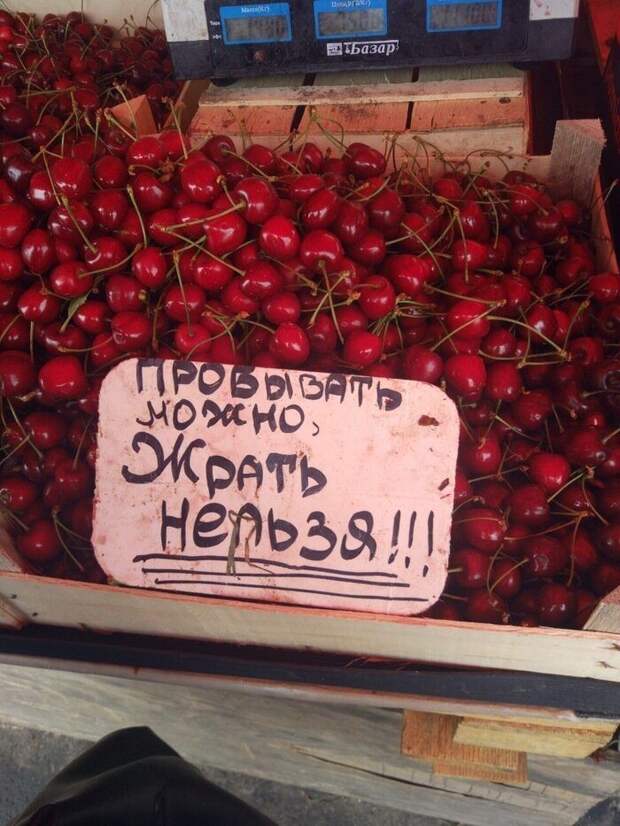 Масса(кг)
Цена(р./кг)
Базар
ПРОБЫВАТЬ
МОЖНО,
ЖРАТЬ
НЕЛЬЗЯ!!!